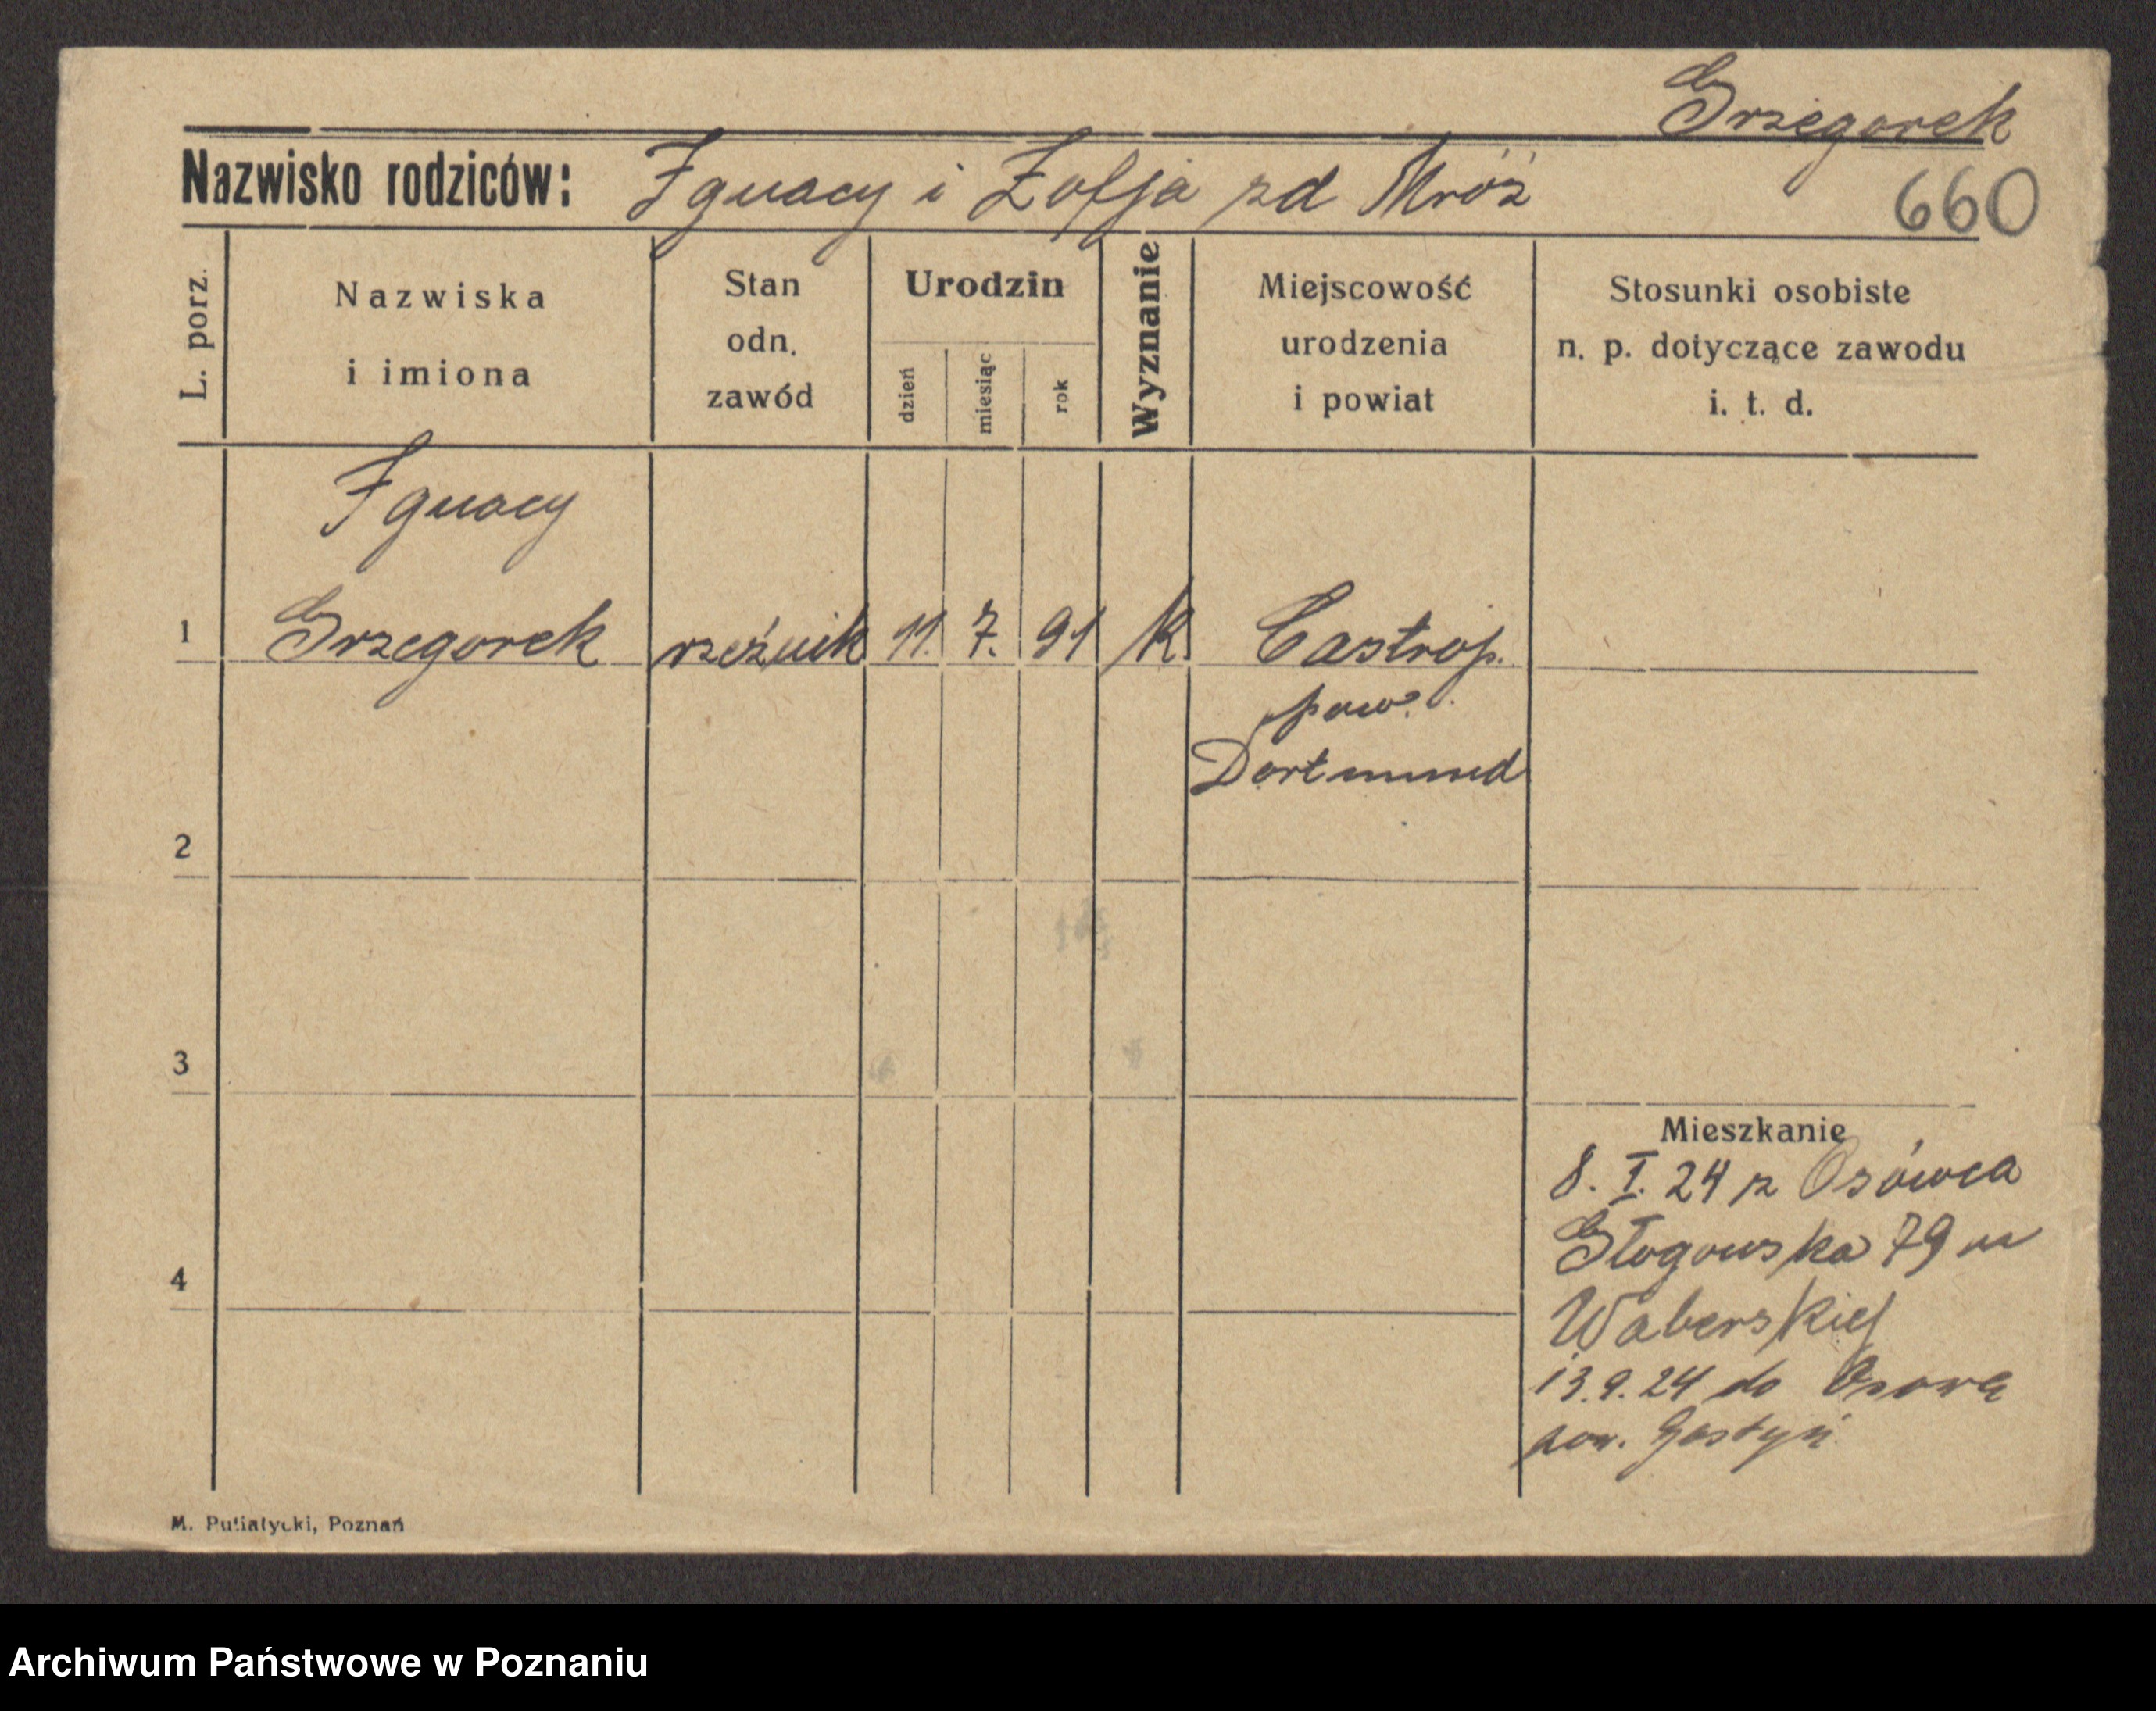 Grzegorek
Nazwisko rodziców: Ignacy i Zofja zd Mróz
660
L. porz.
Nazwiska
i imiona
Stan
odn.
zawód
Urodzin
dzień
miesiąc
rok
Wyznanie
Miejscowość
urodzenia
i powiat
Stosunki osobiste
n. p. dotyczące zawodu
i. t. d.
Ignacy
1 Grzegorek rzeźnik 11. 7. 91 K. Castrop.
pow.
Dortmund
2
3
Mieszkanie
8. I. 24 z Osówca
Głogowska 79 u
4
Waberskiej
13.9.24 do Osowa
pow. Gostyń
M. Putiatycki, Poznań
Archiwum Państwowe w Poznaniu